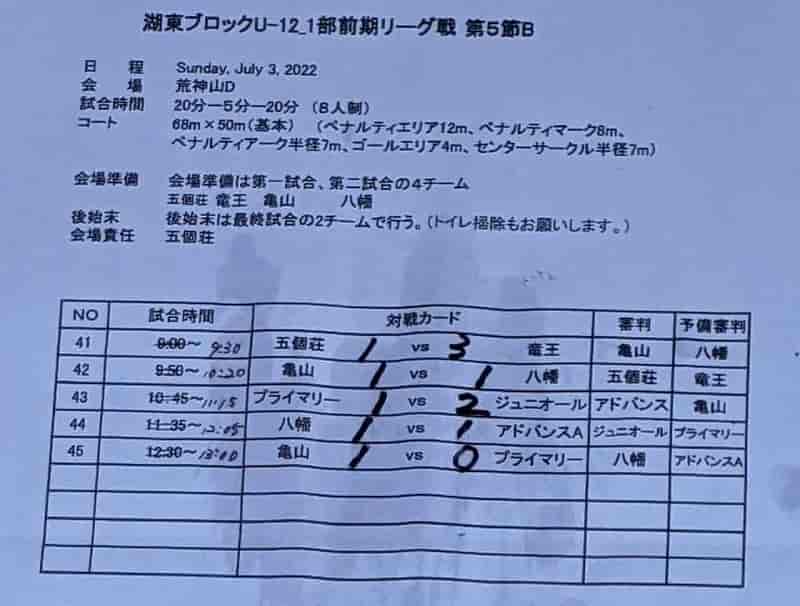 湖東ブロックU-12_1部前期リーグ戦 第5節B
日 程 Sunday, July 3, 2022
会 場 荒神山D
試合時間 20分ー5分ー20分 (8人制)
コート 68m×50m(基本) (ペナルティエリア12m、ペナルティマーク8m、
ペナルティアーク半径7m、ゴールエリア4m、センターサークル半径7m)
会場準備 会場準備は第一試合、第二試合の4チーム
五個荘 竜王 亀山 八幡
後始末 後始末は最終試合の2チームで行う。(トイレ掃除もお願いします。)
会場責任 五個荘
NO 試合時間 対戦カード 審判 予備審判
41 9:00～ 9:30 五個荘 1 vs 3 竜王 亀山 八幡
42 9:50～ 10:20 亀山 1 vs 1 八幡 五個荘 竜王
43 10:45～ 11:15 プライマリー 1 vs 2 ジュニオール アドバンス 亀山
44 11:35～ 12:05 八幡 1 vs 1 アドバンスA ジュニオール プライマリー
45 12:30～ 13:00 亀山 1 vs 0 プライマリー 八幡 アドバンスA